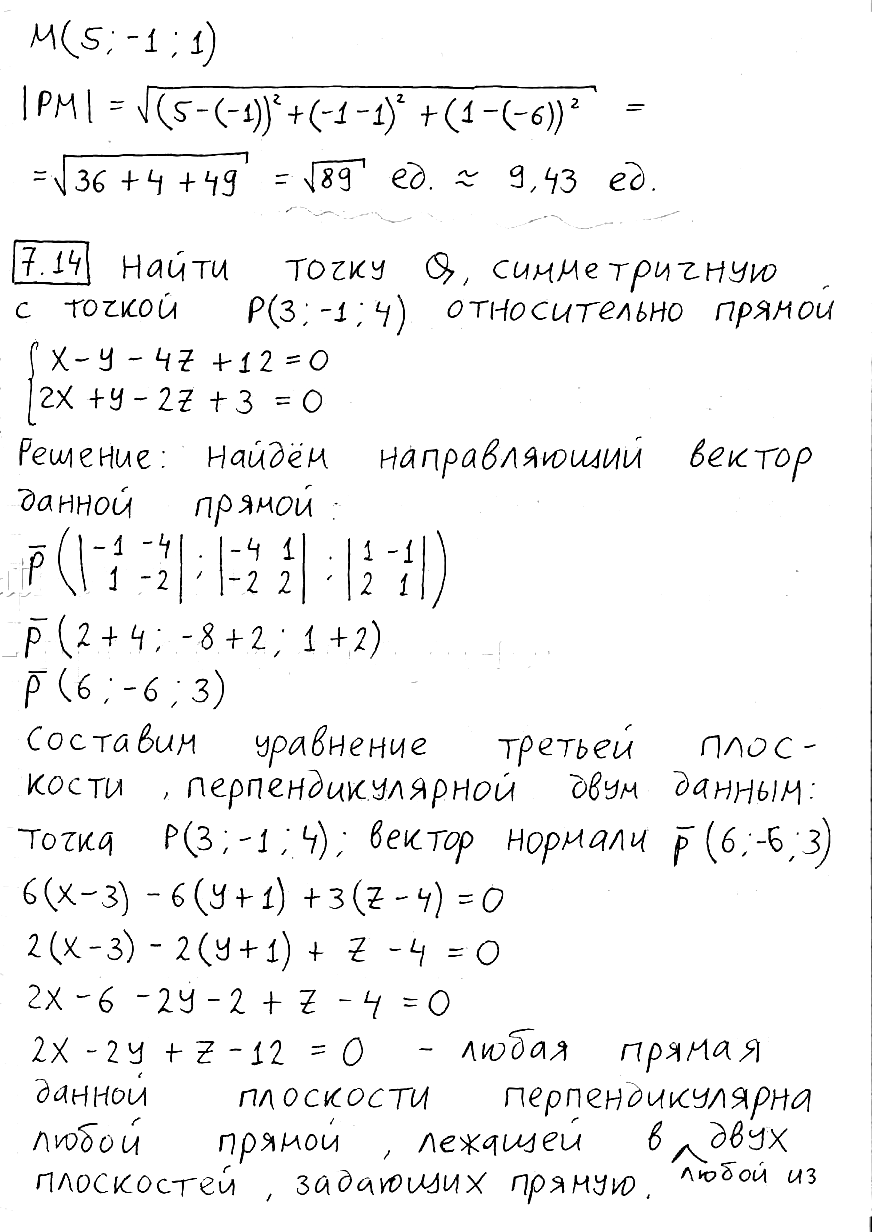 M(5; -1; 1)
|PM| = √((5-(-1))² + (-1-1)² + (1-(-6))²) =
= √(36 + 4 + 49) = √89 ед. ≈ 9,43 ед.
7.14 Найти точку Q, симметричную
с точкой P(3; -1; 4) относительно прямой
{ x - y - 4z + 12 = 0
2x + y - 2z + 3 = 0
Решение: найдём направляющий вектор
данной прямой:
p̄ (|-1 -4; 1 -2| ; |-4 1; -2 2| ; |1 -1; 2 1|)
p̄ (2 + 4; -8 + 2; 1 + 2)
p̄ (6; -6; 3)
Составим уравнение третьей плос-
кости, перпендикулярной двум данным:
точка P(3; -1; 4); вектор нормали p̄ (6; -6; 3)
6(x-3) - 6(y+1) + 3(z-4) = 0
2(x-3) - 2(y+1) + z - 4 = 0
2x - 6 - 2y - 2 + z - 4 = 0
2x - 2y + z - 12 = 0 - любая прямая
данной плоскости перпендикулярна
любой прямой, лежащей в ^ двух
плоскостей, задающих прямую. любой из